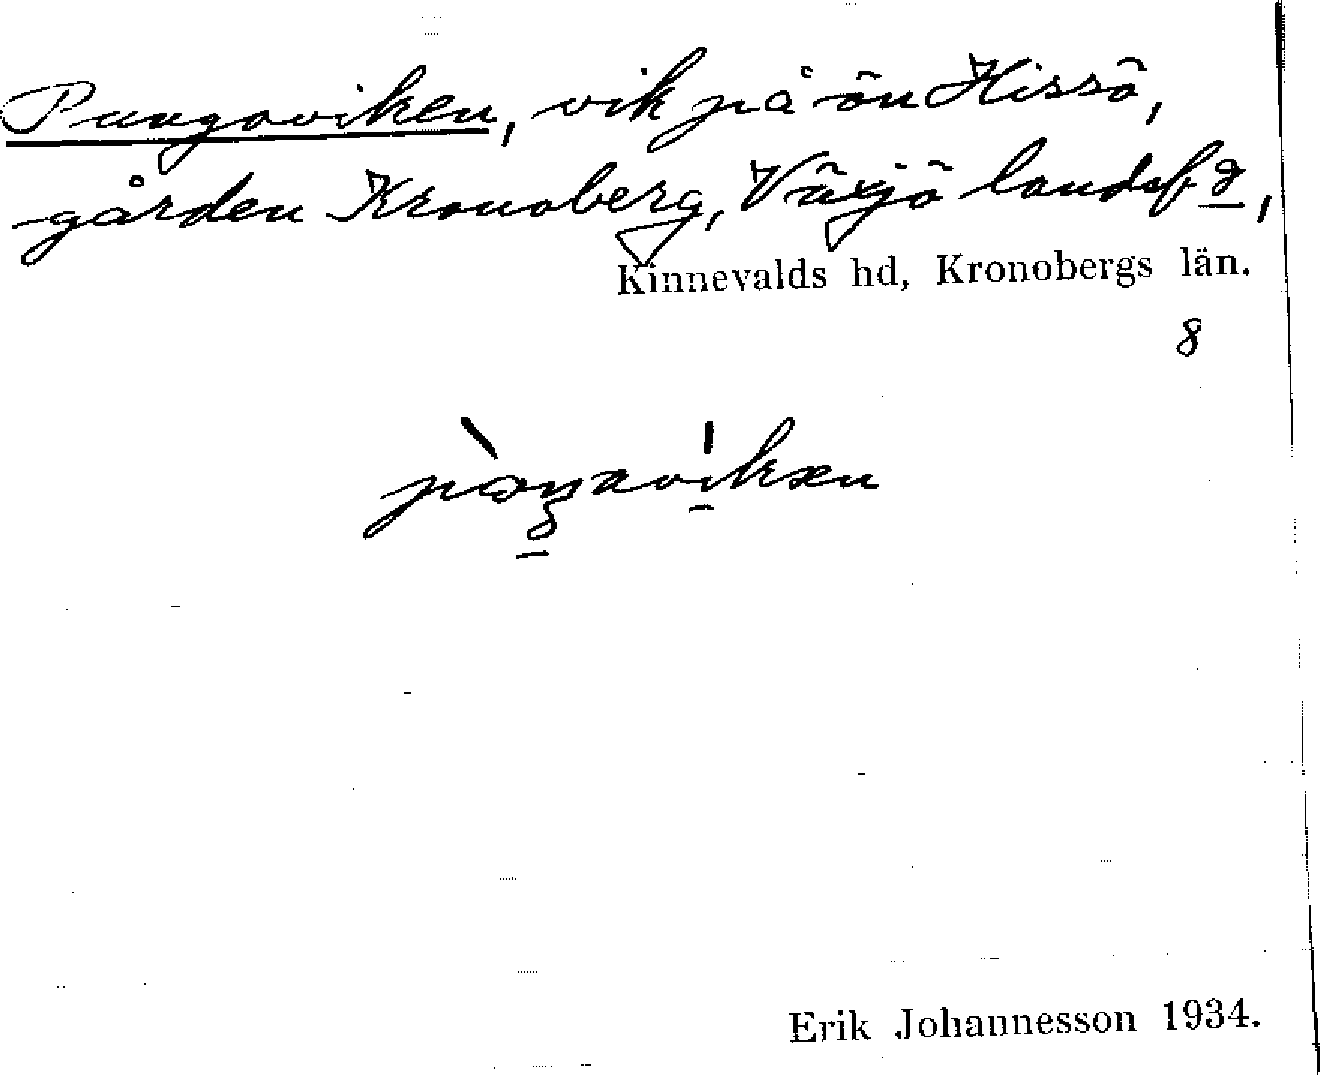 Pungaviken, vik på ön Hissö,
gården Kronoberg, Växjö landsf̲d̲,
Kinnevalds hd, Kronobergs län.
8
Erik Johannesson 1934.